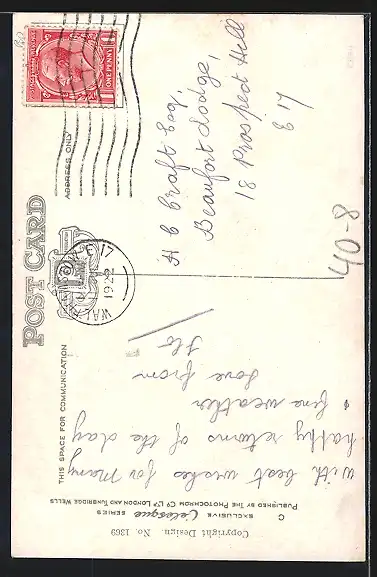 POST CARD
THIS SPACE FOR COMMUNICATION
ADDRESS ONLY
POSTAGE & REVENUE
ONE PENNY
WALTHAMSTOW E 17
1922
H C Craft Esq,
Beaufort Lodge,
18 Prospect Hill
E 17
40-8
With best wishes for Many
happy returns of the day
& fine weather
Love from
Flo
Copyright Design. No. 1369
C
EXCLUSIVE Celesque SERIES
PUBLISHED BY THE PHOTOCHROM CO LTD LONDON AND TUNBRIDGE WELLS